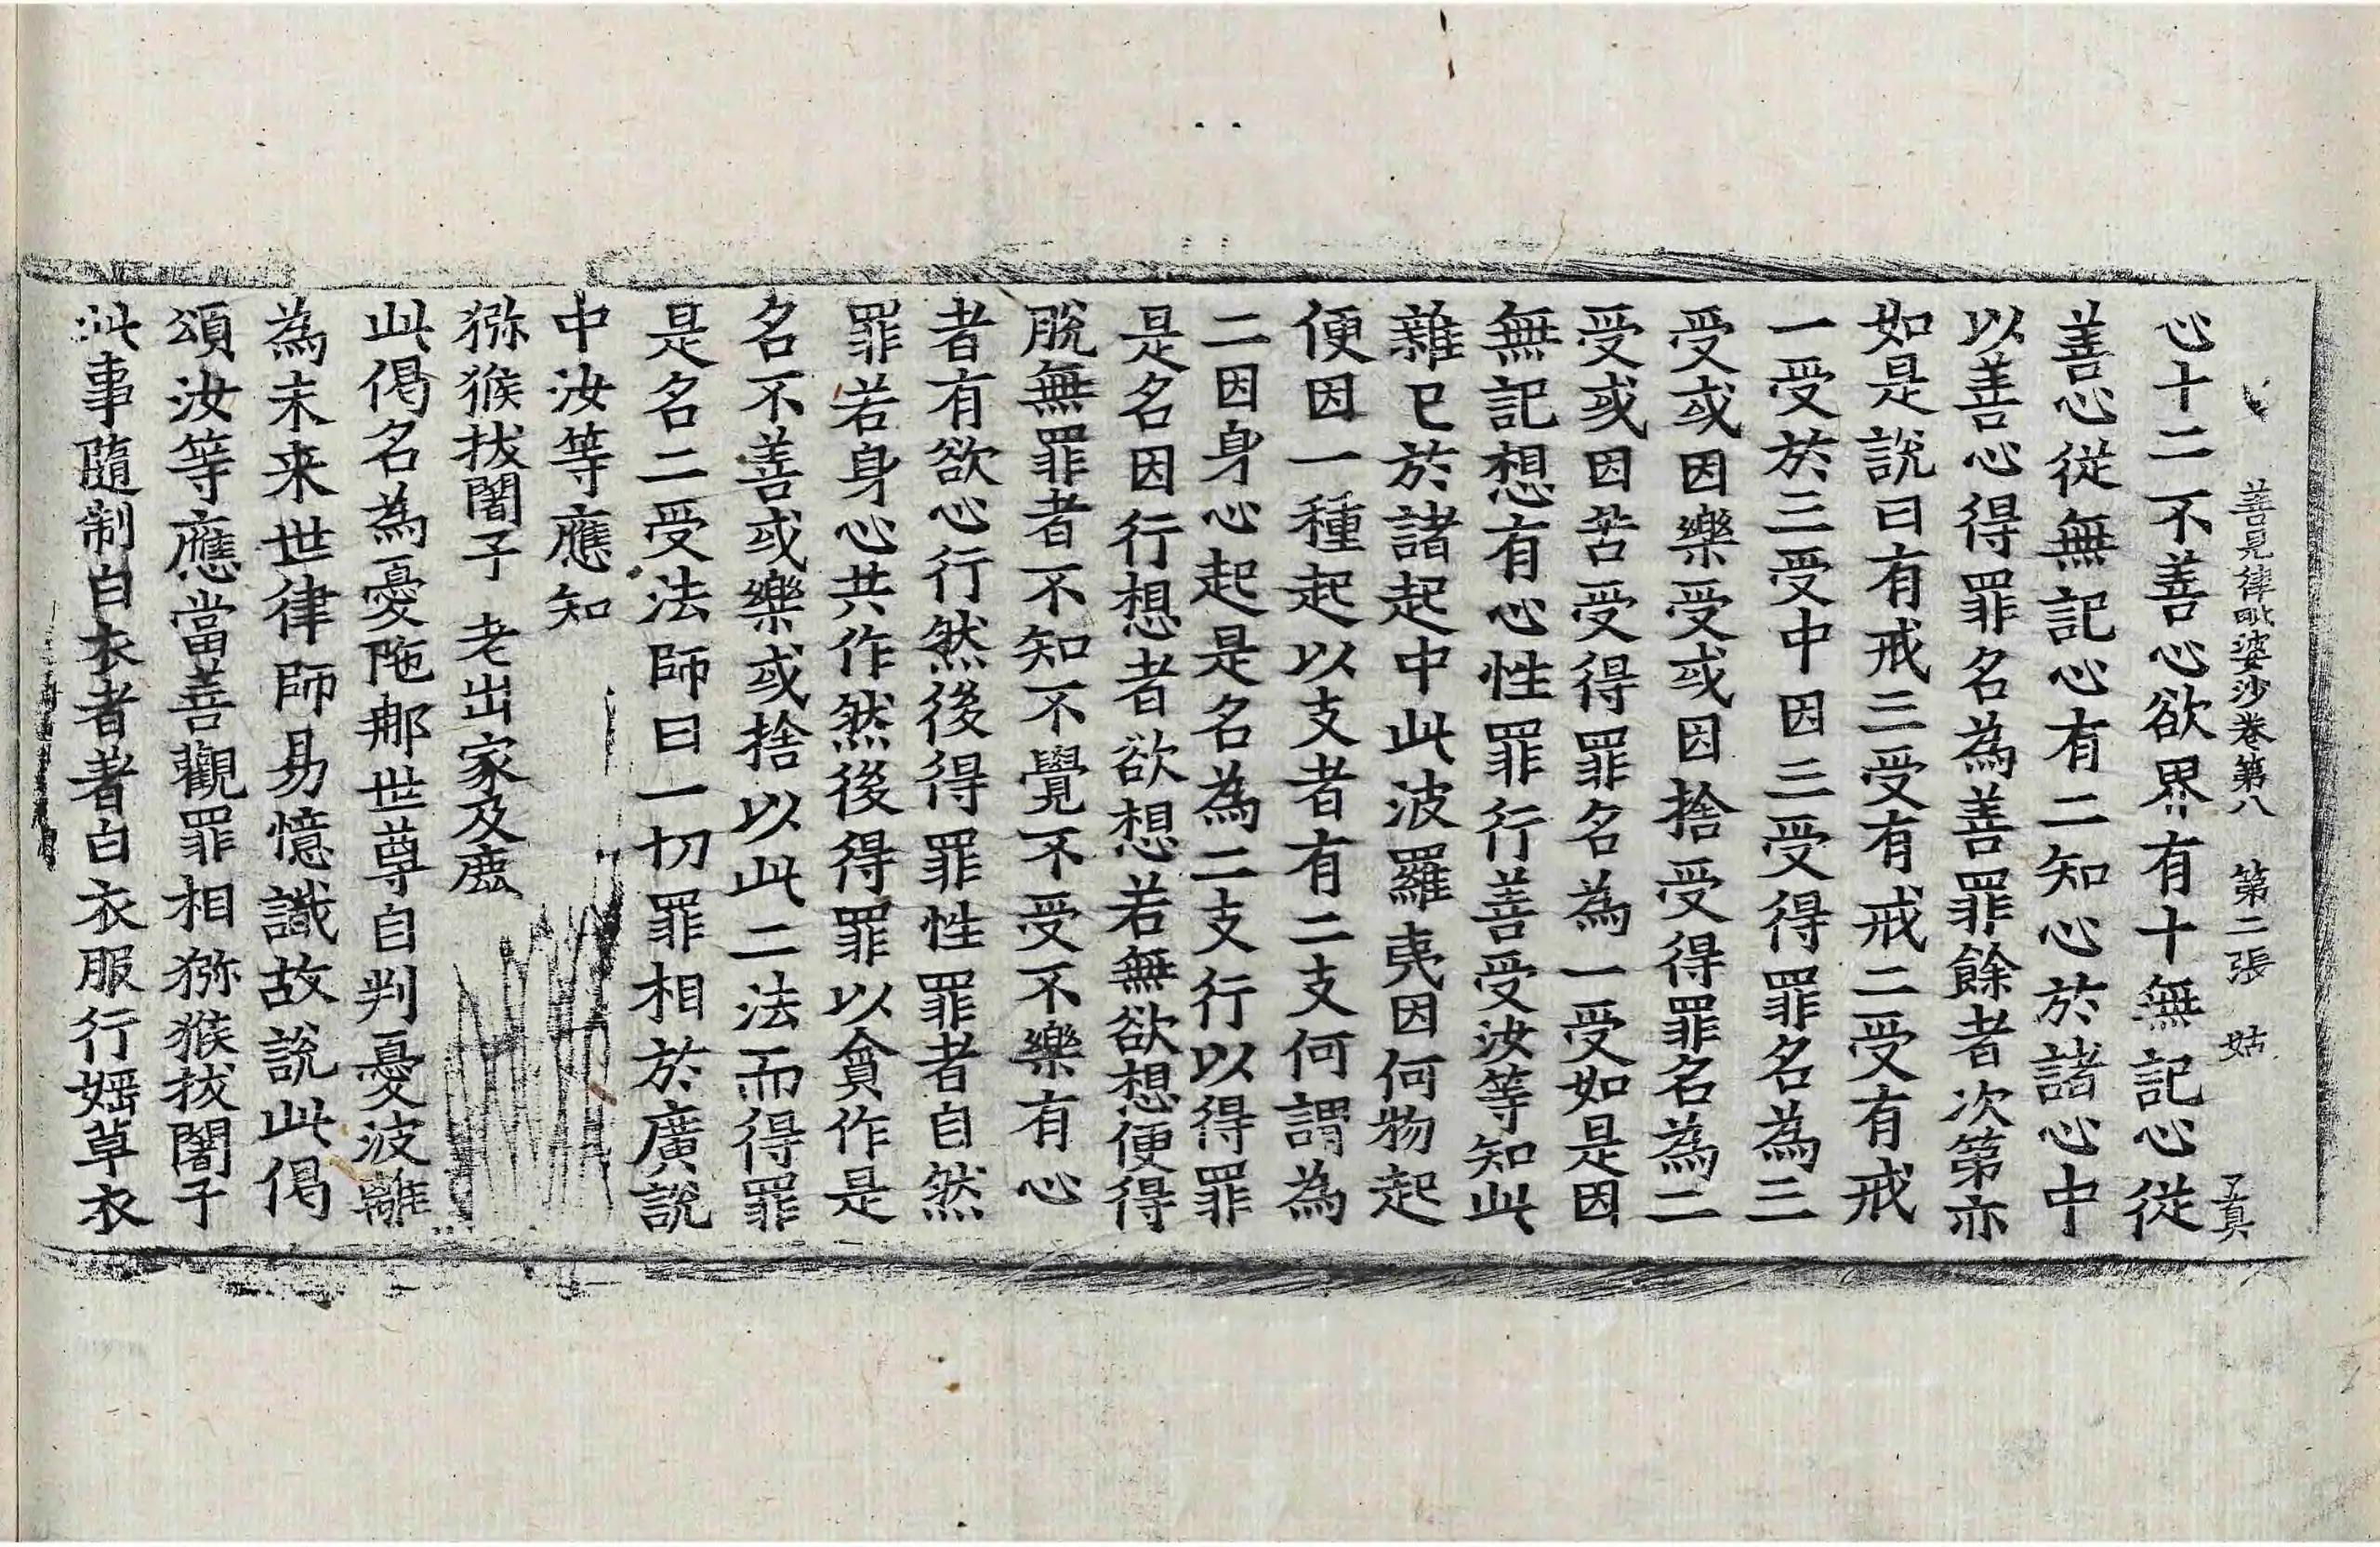 善見律毗婆沙卷第八 第二張 姑 了真
心十二不善心欲界有十無記心從
善心從無記心有二知心於諸心中
以善心得罪名為善罪餘者次第亦
如是說曰有戒三受有戒二受有戒
一受於三受中因三受得罪名為三
受或因樂受或因捨受得罪名為二
受或因苦受得罪名為一受如是因
無記想有心性罪行善受汝等知此
雜已於諸起中此波羅夷因何物起
便因一種起以支者有二支何謂為
二因身心起是名為二支行以得罪
是名因行想者欲想若無欲想便得
脫無罪者不知不覺不受不樂有心
者有欲心行然後得罪性罪者自然
罪若身心共作然後得罪以貪作是
名不善或樂或捨以此二法而得罪
是名二受法師曰一切罪相於廣說
中汝等應知
猕猴拔闍子 老出家及鹿
此偈名為憂陁那世尊自判憂波離
為未来世律師易憶識故說此偈
頌汝等應當善觀罪相猕猴拔闍子
此事隨制白衣者著白衣服行婬草衣